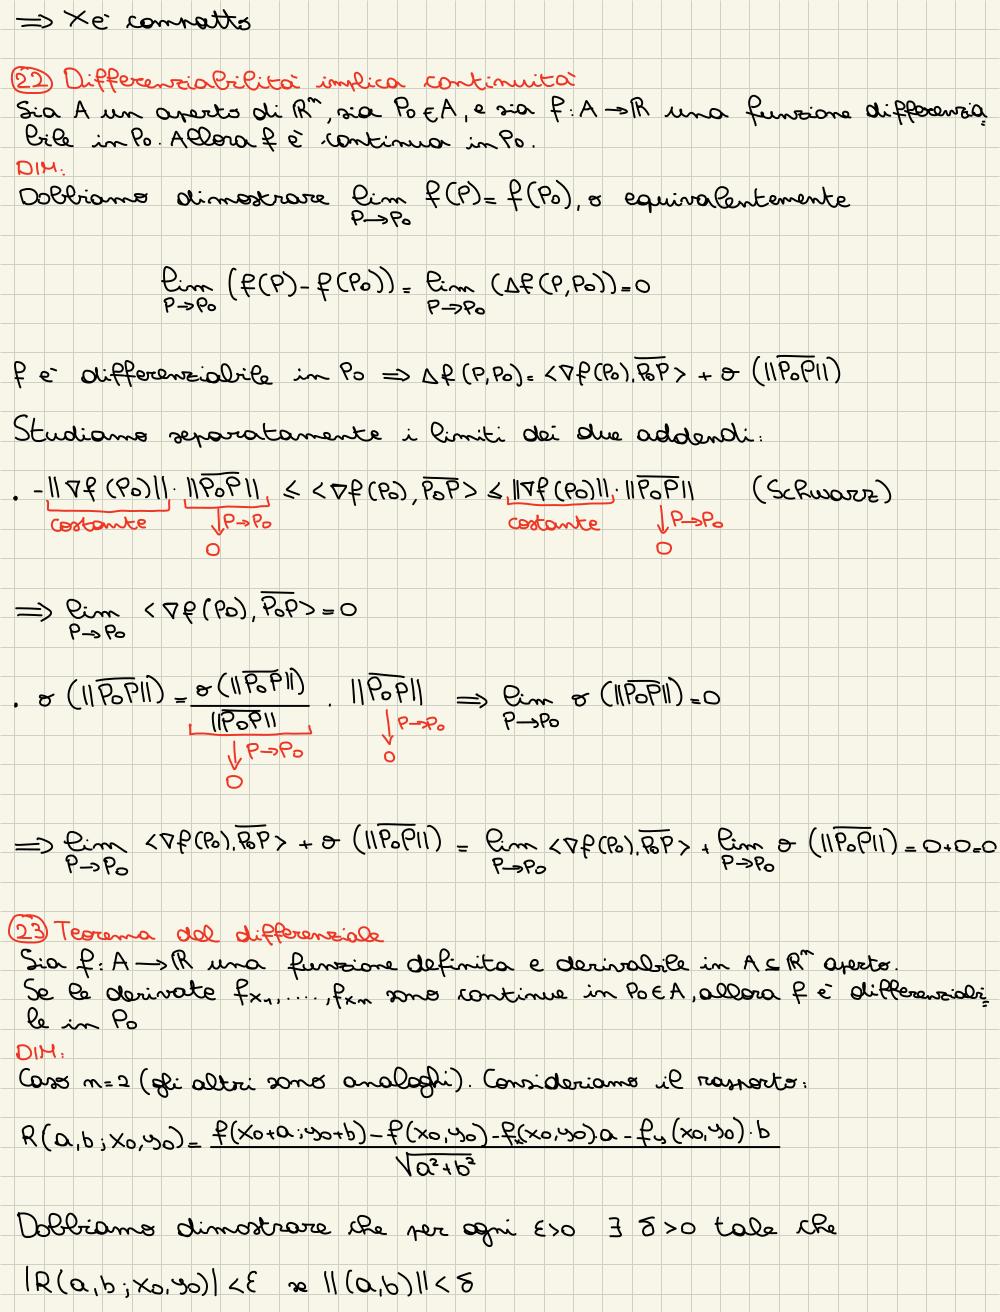 ⟹ X è compatto
22 Differenziabilità implica continuità
Sia A un aperto di ℝⁿ, sia P₀∈A, e sia f: A→ℝ una funzione differenzia
bile in P₀. Allora f è continua in P₀.
DIM:
Dobbiamo dimostrare lim_{P→P₀} f(P) = f(P₀), o equivalentemente
lim_{P→P₀} (f(P) - f(P₀)) = lim_{P→P₀} (Δf(P,P₀)) = 0
f è differenziabile in P₀ ⟹ Δf(P,P₀) = <∇f(P₀), P₀P̅> + o(||P₀P̅||)
Studiamo separatamente i limiti dei due addendi:
. -||∇f(P₀)|| · ||P₀P̅|| ≤ <∇f(P₀), P₀P̅> ≤ ||∇f(P₀)|| · ||P₀P̅|| (Schwarz)
costante ↓P→P₀ costante ↓P→P₀
0 0
⟹ lim_{P→P₀} <∇f(P₀), P₀P̅> = 0
. o(||P₀P̅||) = o(||P₀P̅||) / ||P₀P̅|| · ||P₀P̅|| ⟹ lim_{P→P₀} o(||P₀P̅||) = 0
↓P→P₀ ↓P→P₀
0 0
⟹ lim_{P→P₀} <∇f(P₀), P₀P̅> + o(||P₀P̅||) = lim_{P→P₀} <∇f(P₀), P₀P̅> + lim_{P→P₀} o(||P₀P̅||) = 0+0=0
23 Teorema del differenziale
Sia f: A→ℝ una funzione definita e derivabile in A⊆ℝⁿ aperto.
Se le derivate f_{x₁},....,f_{xₙ} sono continue in P₀∈A, allora f è differenziabi
le in P₀
DIM:
Caso n=2 (gli altri sono analoghi). Consideriamo il rapporto:
R(a,b;x₀,y₀) = f(x₀+a;y₀+b) - f(x₀,y₀) - fₓ(x₀,y₀)·a - f_y(x₀,y₀)·b / √a²+b²
Dobbiamo dimostrare che per ogni ε>0 ∃ δ>0 tale che
|R(a,b;x₀,y₀)| < ε se ||(a,b)|| < δ